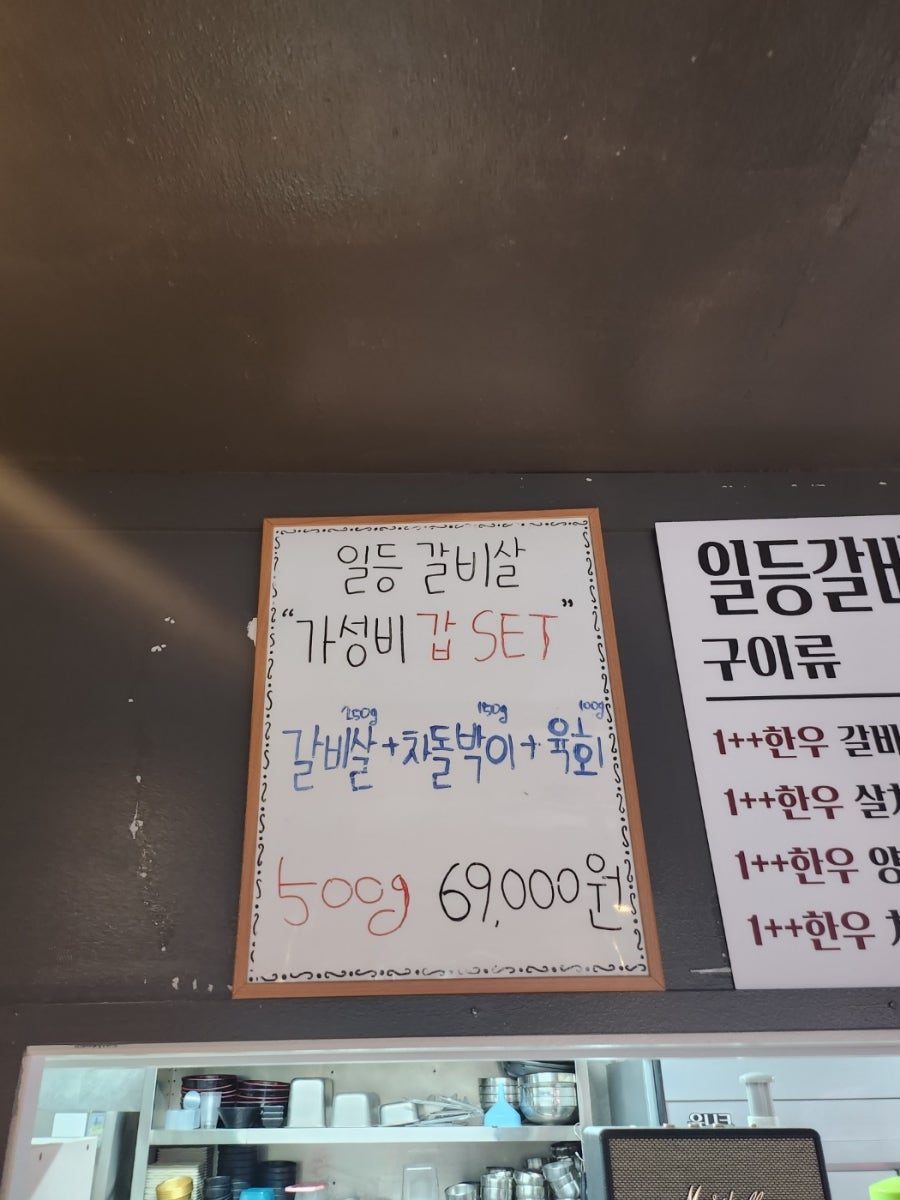 일등 갈비살
"가성비 갑 SET"
250g 150g 100g
갈비살+차돌박이+육회
500g 69,000원
일등갈비
구이류
1++한우 갈비
1++한우 살치
1++한우 양
1++한우
Marshall